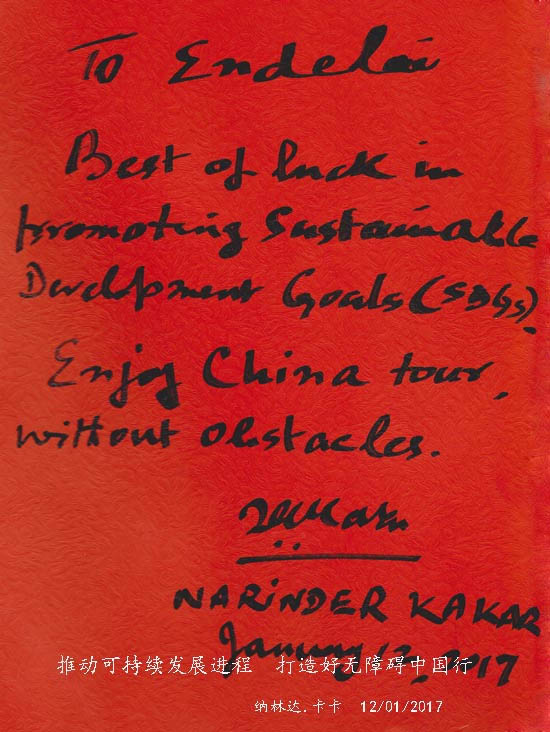 To Endelai
Best of luck in
promoting Sustainable
Development Goals (SDGs).
Enjoy China tour,
without obstacles.
NARINDER KAKAR
January 12, 2017
推动可持续发展进程 打造好无障碍中国行
纳林达.卡卡 12/01/2017